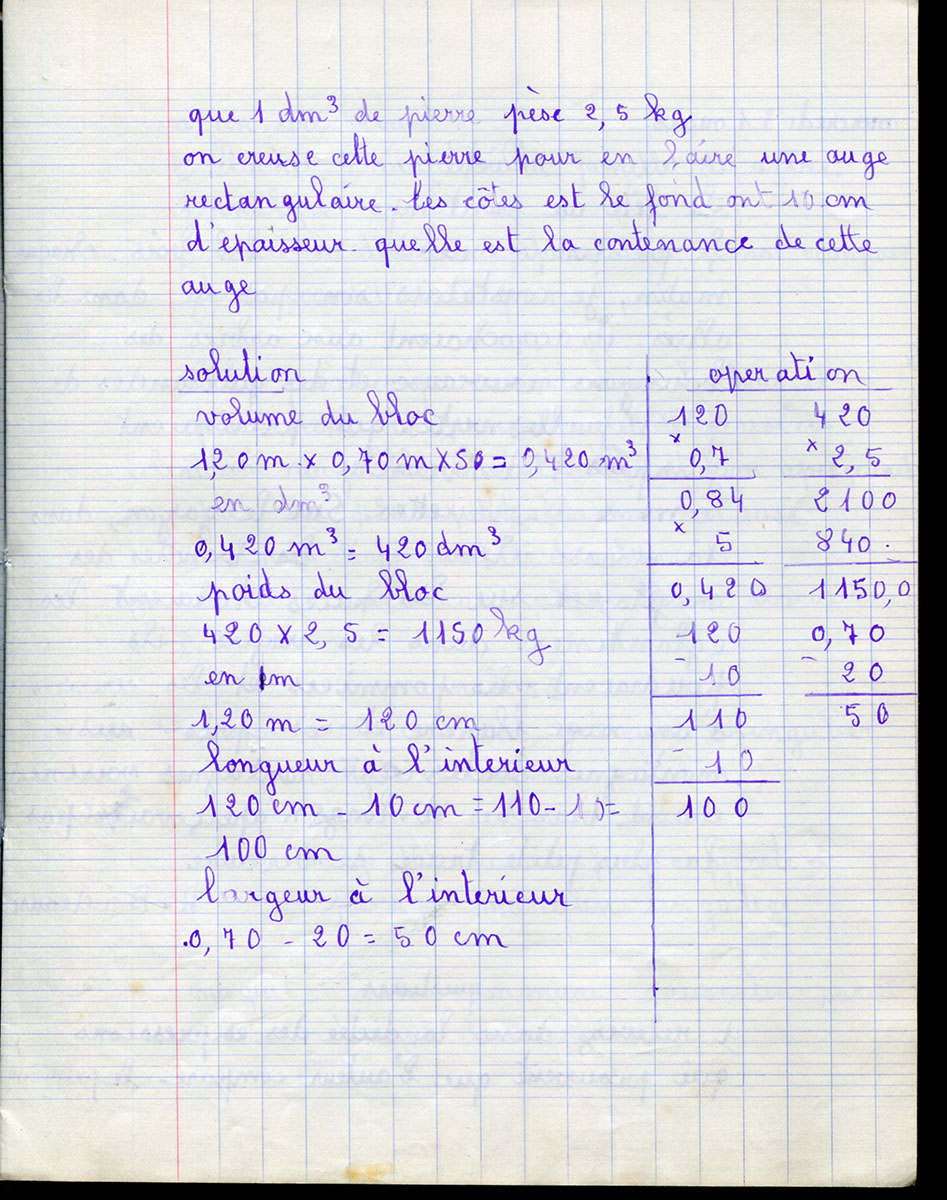 que 1 dm³ de pierre pèse 2,5 kg
on creuse cette pierre pour en faire une auge
rectangulaire. Les côtes est le fond ont 10 cm
d'epaisseur. quelle est la contenance de cette
auge
solution
volume du bloc
1,20 m × 0,70 m × 50 = 0,420 m³
en dm³
0,420 m³ = 420 dm³
poids du bloc
420 × 2,5 = 1150 kg
en m
1,20 m = 120 cm
longueur à l'interieur
120 cm - 10 cm = 110 - 10 =
100 cm
largeur à l'interieur
0,70 - 20 = 50 cm
operation
120
× 0,7
0,84
× 5
0,420
120
- 10
110
- 10
100
420
× 2,5
2100
840.
1150,0
0,70
- 20
50